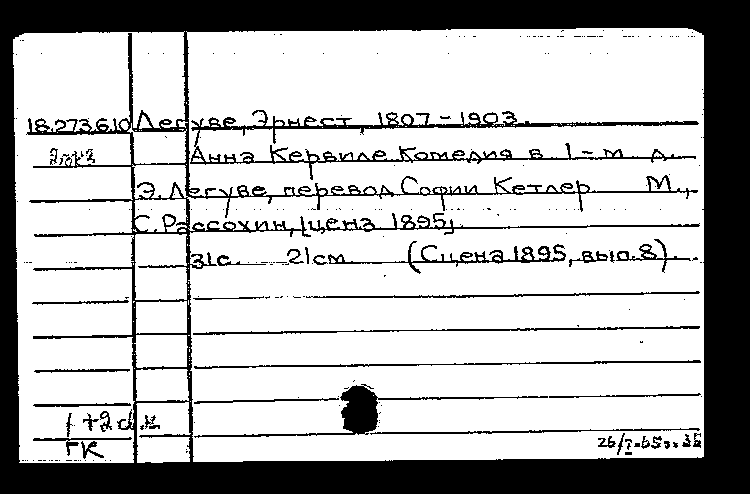 18.273.610 Легуве, Эрнест, 1807-1903.
2экз Анна Кервиле Комедия в 1-м д.
Э. Легуве, перевод Софии Кетлер. М.,
С. Рассохин, [ценз 1895].
31с. 21см. (Сцена 1895, вып.8).
ГК